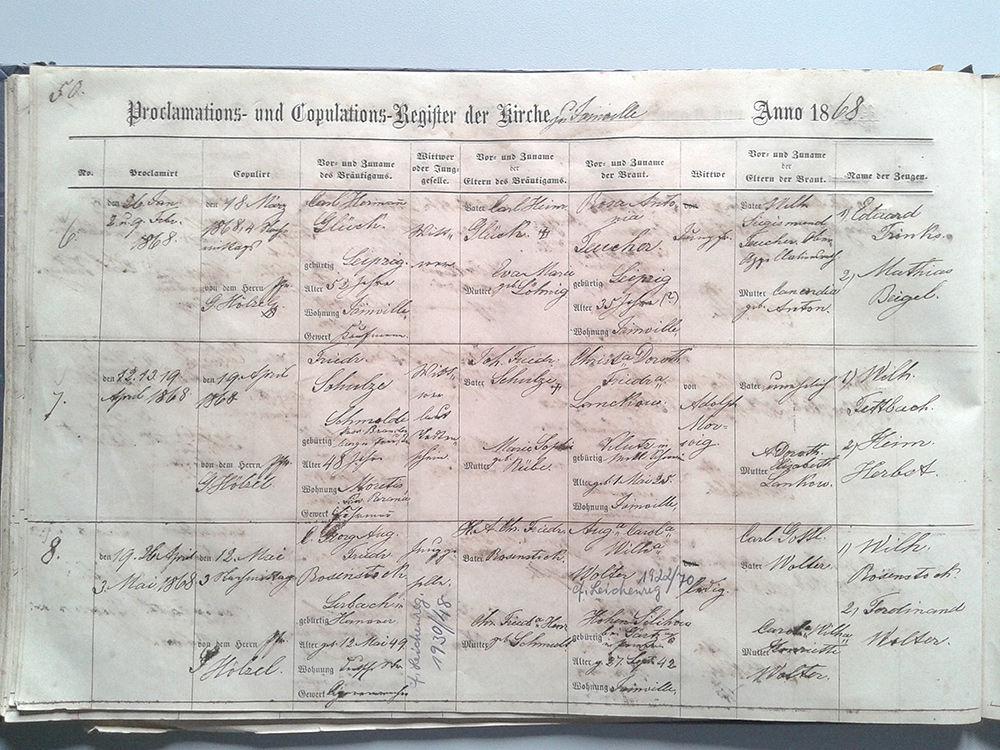 50.
Proclamations- und Copulations-Register der Kirche zu Joinville Anno 1868.
No. Proclamirt Copulirt Vor- und Zuname des Bräutigams. Wittwer oder Junggeselle. Vor- und Zuname der Eltern des Bräutigams. Vor- und Zuname der Braut. Wittwe Vor- und Zuname der Eltern der Braut. Name der Zeugen.
6.
den 26 Jan.
2 u. 9. Febr.
1868.
den 18. März
1868, 4
von dem Herrn Pfr.
G Hölzel
Carl Hermann
Glück.
gebürtig Leipzig.
Alter 52 Jahre
Wohnung Joinville
Gewerk Kaufmann.
Witt-
wer
Vater Carl Heinr.
Glück
Eva Marie
Mutter geb. Löhnig
Rosa Anto-
nia
Teucher.
gebürtig Leipzig
Alter 35 Jahre (?)
Wohnung Joinville,
von
Jungfr.
Vater Wilh.
Sigismund
Teucher
Mutter Concordia
geb. Anton.
1) Eduard
Trinks.
2) Mathias
Beigel.
7.
den 12. 13. 19
April 1868
den 19. April
1868.
von dem Herrn Pfr.
G Hölzel.
Friedr.
Schulze
gebürtig Schmolde
Alter 48 Jahre
Wohnung
Gewerk
Witt-
wer
laut
Joh. Friedr.
Vater Schulze
Marie Sophie
Mutter geb. Rübe.
Christa Doroth.
Frieda
Lanckow.
gebürtig
Alter geb. 1 Mai 25.
Wohnung Joinville,
von
Adolph
Vater unehelich
A Doroth.
Mutter Elizabeth
Lankow.
1) Wilh.
Tettbach.
2) Heinr.
Herbst
8.
den 19. 26. April
3 Mai 1868
den 12. Mai
3 Nachmittag
von dem Herrn Pfr.
G Hölzel.
Georg Aug.
Friedr
Rosenstock
gebürtig Lerbach in
Hannover
Alter geb. 12 Mai 49
Wohnung
Gewerk
Jungge-
selle.
f. Leichenreg.
1930/48
H. A. Chr. Friedr.
Vater Rosenstock.
Mutter geb. Schmidt
Auga Carola
Wilha
Wolter 1922/70
cf. Leichenreg
gebürtig Hohen
Alter g. 27. Sept. 42
Wohnung Joinville,
von
ledig.
Carl Gottl.
Vater Wolter.
Mutter
Wolter.
1) Wilh.
Rosenstock.
2) Ferdinand
Wolter.